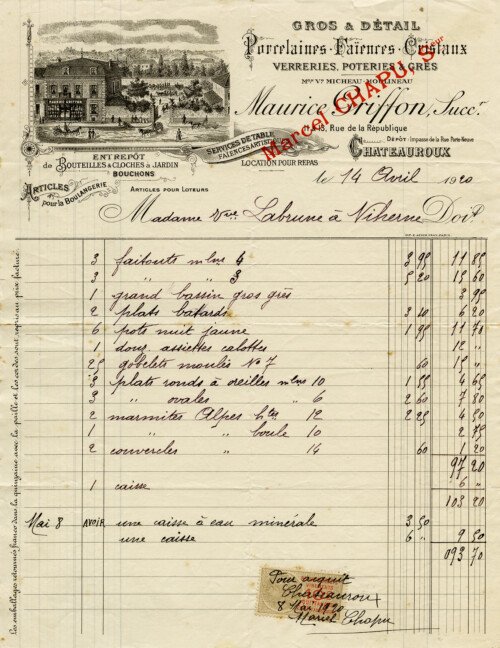 GROS & DÉTAIL
Porcelaines-Faïences-Cristaux
VERRERIES, POTERIES & GRÈS
Mon Vve MICHEAU-MOULINEAU
Maurice Griffon, Succr.
Marcel CHAPU, Sseur
18, Rue de la République
DÉPÔT - Impasse de la Rue Porte-Neuve
CHATEAUROUX
SERVICES DE TABLE
FAÏENCES ARTIST
LOCATION POUR REPAS
ENTREPÔT
de BOUTEILLES & CLOCHES à JARDIN
BOUCHONS
ARTICLES pour la BOULANGERIE
ARTICLES POUR LOTEURS
le 14 Avril 1920
Madame Vve Labrune à Niherne Doit
3 faitouts mlns 4 3 95 11 85
3 " " 3 5 20 15 60
1 grand bassin gros grès 3 99
2 plats batards 3 10 6 20
6 pots nuit jaune 1 95 11 70
1 douz. assiettes calottes 12 "
25 gobelets moulés No 7 60 15 "
3 plats ronds à oreilles mlns 10 1 55 4 65
3 " ovales " 6 2 60 7 80
2 marmites Alpes htes 12 2 25 4 50
1 " " boule 10 2 75
2 couvercles " 14 60 1 20
97 20
1 caisse 6 "
103 20
Mai 8 AVOIR une caisse à eau minérale 3 50
une caisse 6 " 9 50
093 70
Pour acquit
Chateauroux
8 Mai 1920
Marcel Chapu
Les emballages retournés franco dans la quinzaine avec la paille et les cordes sont repris au prix facturé.